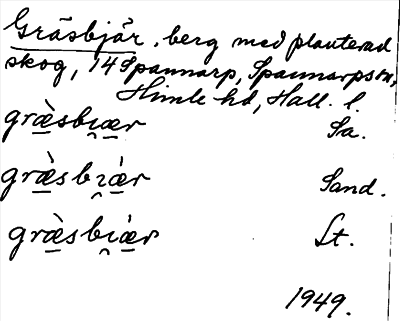 Gräsbjär, berg med planterad
skog, 14 Spannarp, Spannarps sn,
Himle hd, Hall. l.
græ̀sbi̯ær Sa.
græ̀sbi̯æ̀r Sand.
græ̀sbi̯æ̀r Lt.
1949.